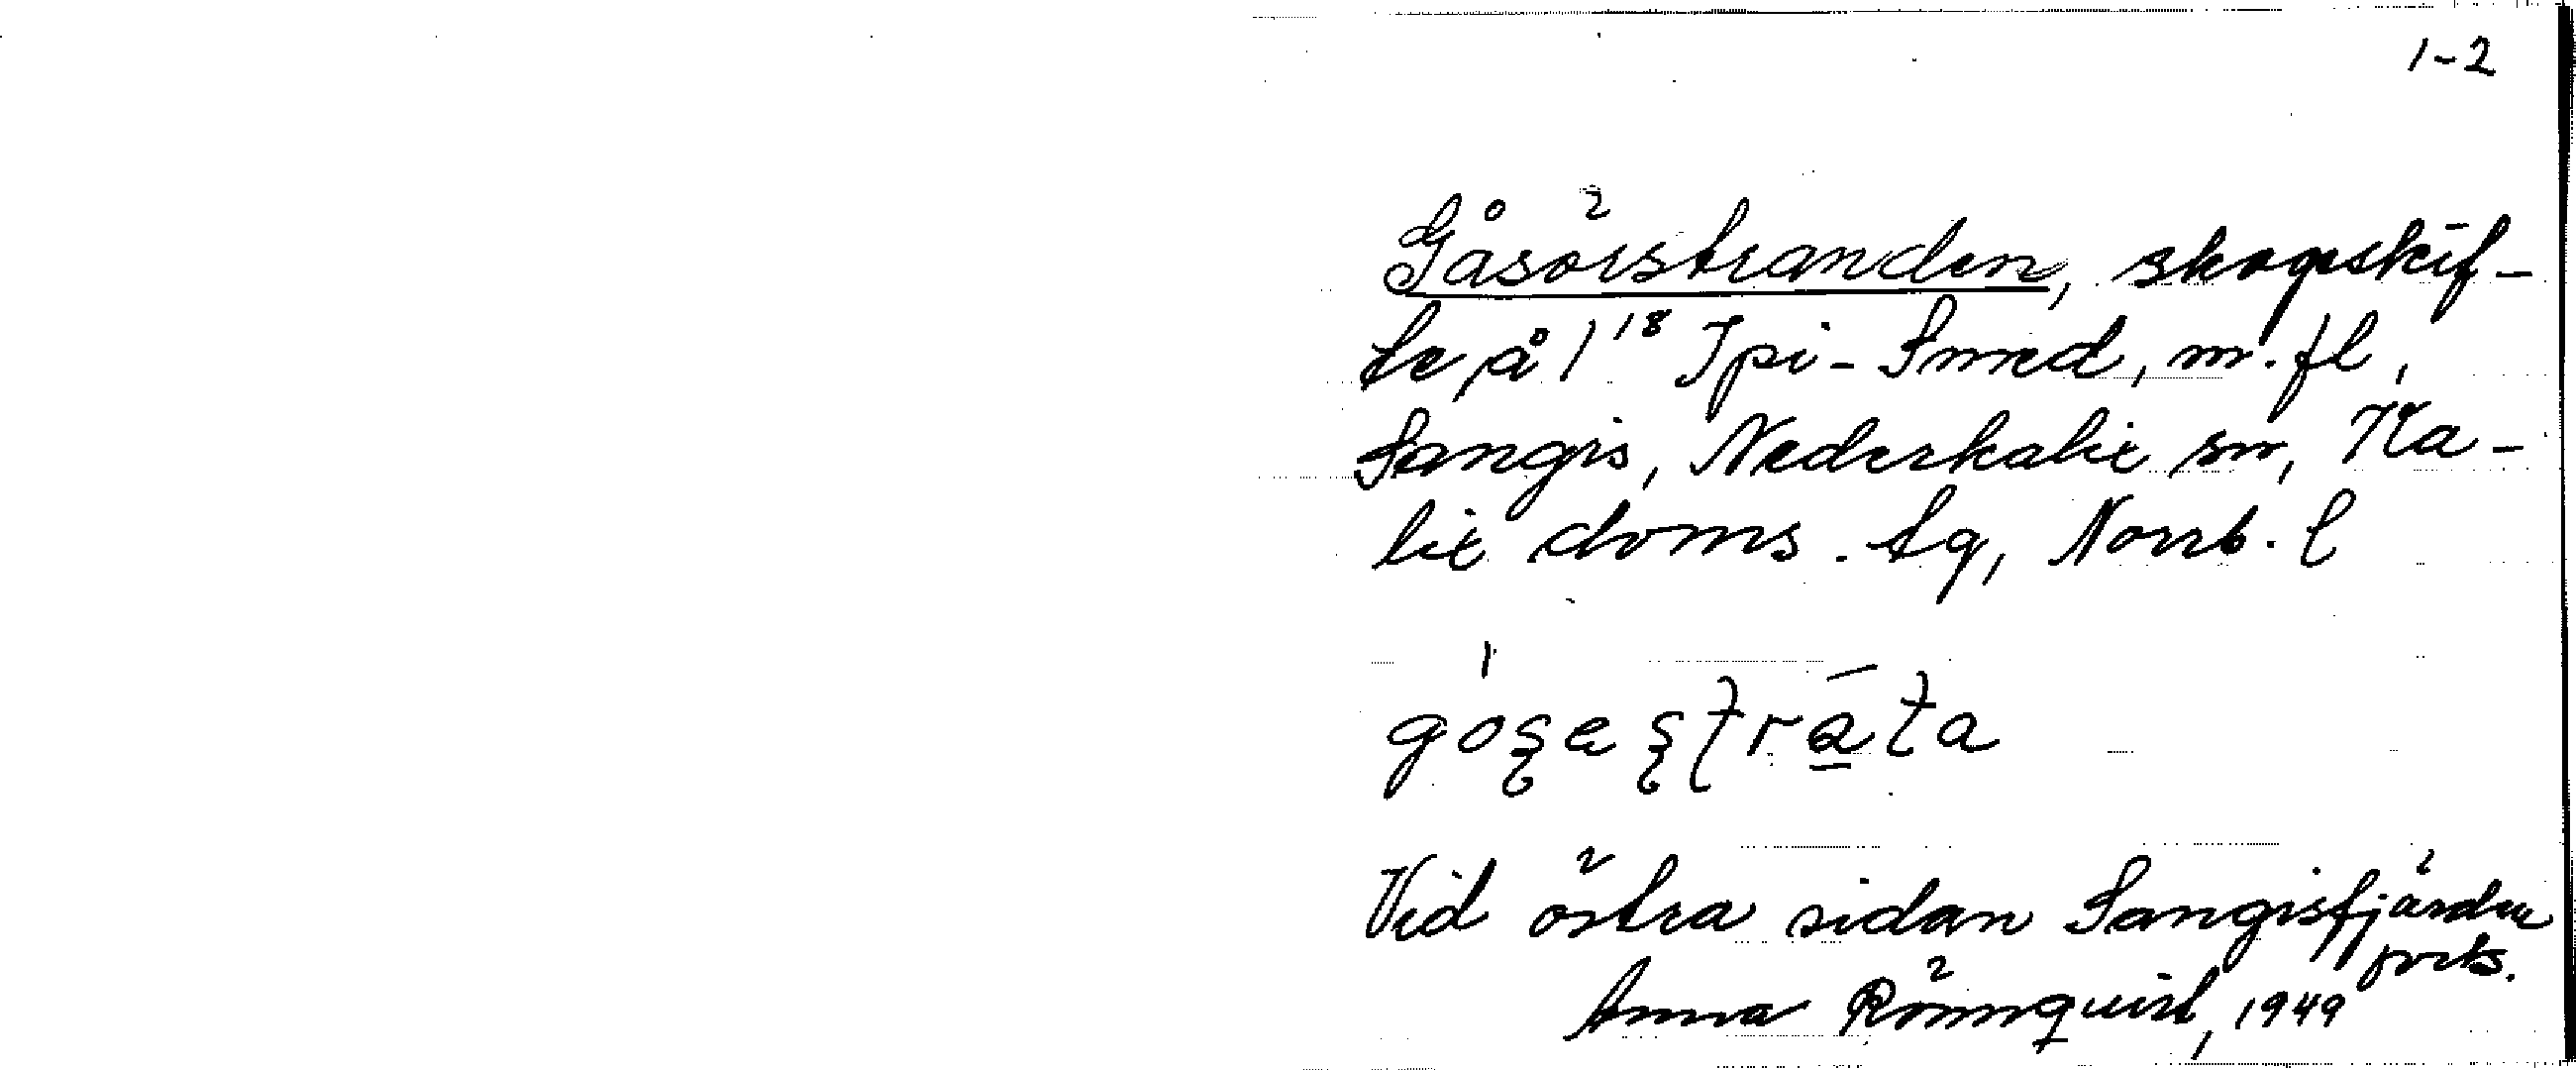 1-2
Gåsörstranden, skogsskif-
te å 1¹⁸ Ipi-Smed, m.fl,
Sangis, Nederkalix sn, Ka-
lix doms. tg, Norrb. l
Vid östra sidan Sangisfjärden
forts.
Anna Rönnquist, 1949